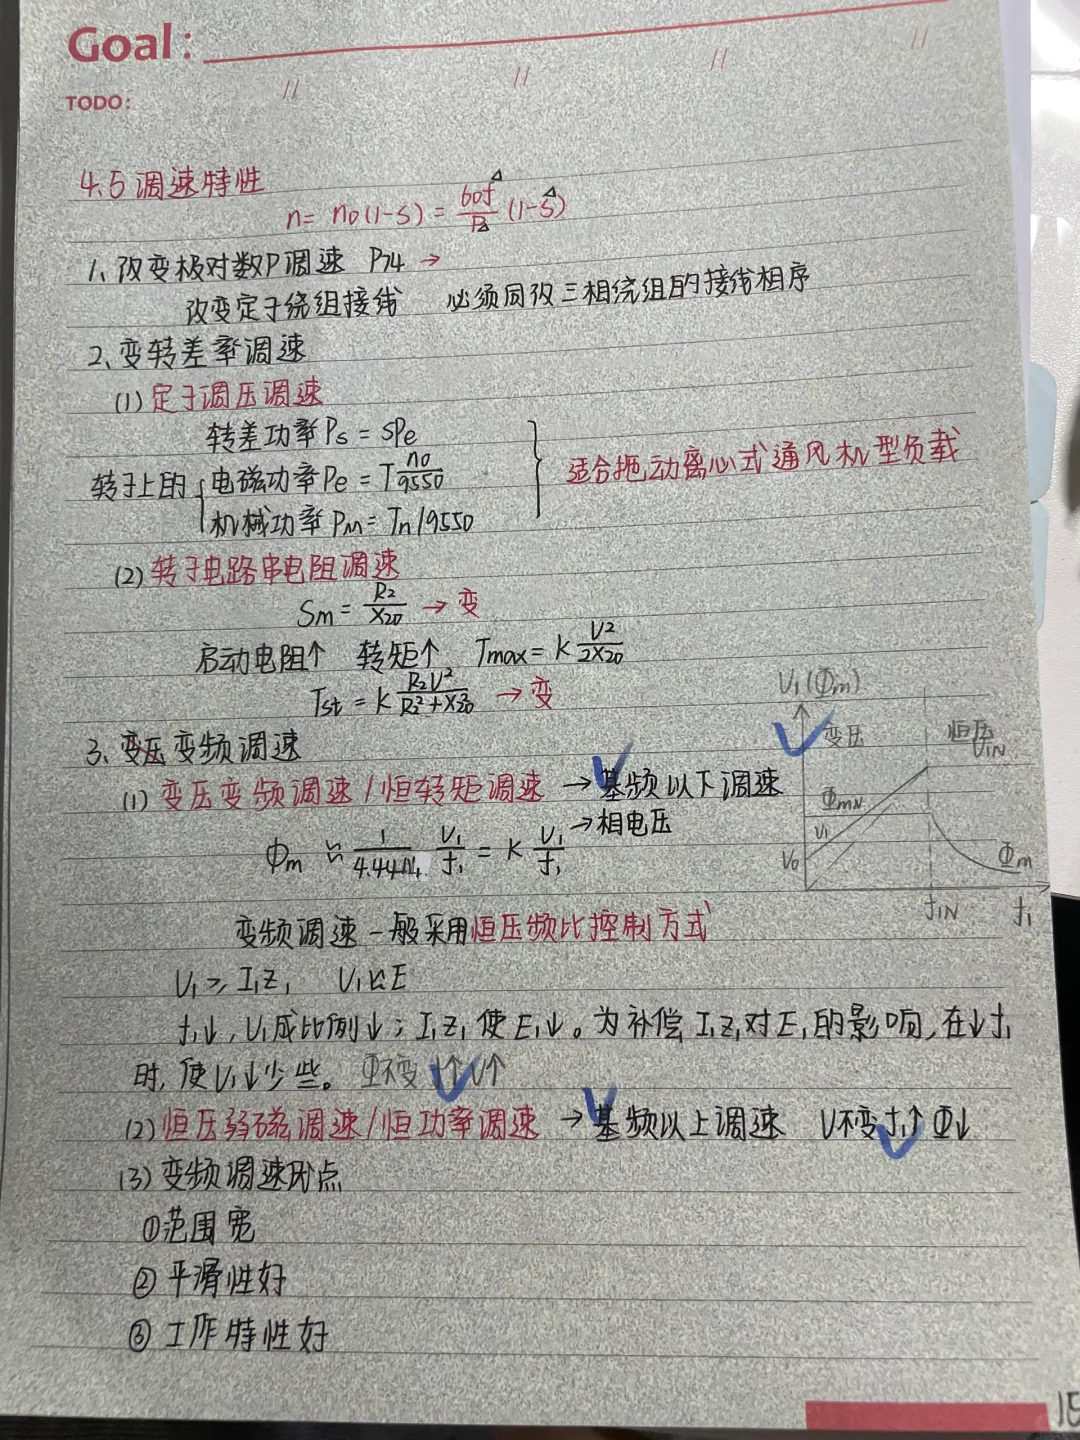 Goal:
TODO:
4.5 调速特性
n = n₀(1-S) = 60f/P (1-S)
1、改变极对数P调速 P74 →
改变定子绕组接线 必须同改三相绕组的接线相序
2、变转差率调速
(1) 定子调压调速
转差功率Ps = SPe
转子上的 { 电磁功率Pe = T n₀/9550
机械功率Pm = Tn/9550
} 适合拖动离心式通风机型负载
(2) 转子电路串电阻调速
Sm = R₂/X₂₀ → 变
启动电阻↑ 转矩↑ Tmax = K U²/2X₂₀
Tst = K R₂U²/R₂²+X₂₀² → 变
3、变频调速
(1) 变压变频调速/恒转矩调速 → 基频以下调速
Φm ≈ 1/4.44N₁ U₁/f₁ = K U₁/f₁ → 相电压
U₁(Φm)
变压 恒压
U₁N
ΦmN
U₁
U₀
Φm
f₁N f₁
变频调速一般采用恒压频比控制方式
U₁ > I₁Z₁ U₁≈E
f₁↓, U₁成比例↓; I₁Z₁使E₁↓。为补偿I₁Z₁对E₁的影响, 在↓f₁
时, 使U₁↓少些。 Φ不变 f↑U↑
(2) 恒压弱磁调速/恒功率调速 → 基频以上调速 U不变f₁↑Φ↓
(3) 变频调速
① 范围宽
② 平滑性好
③ 工作特性好